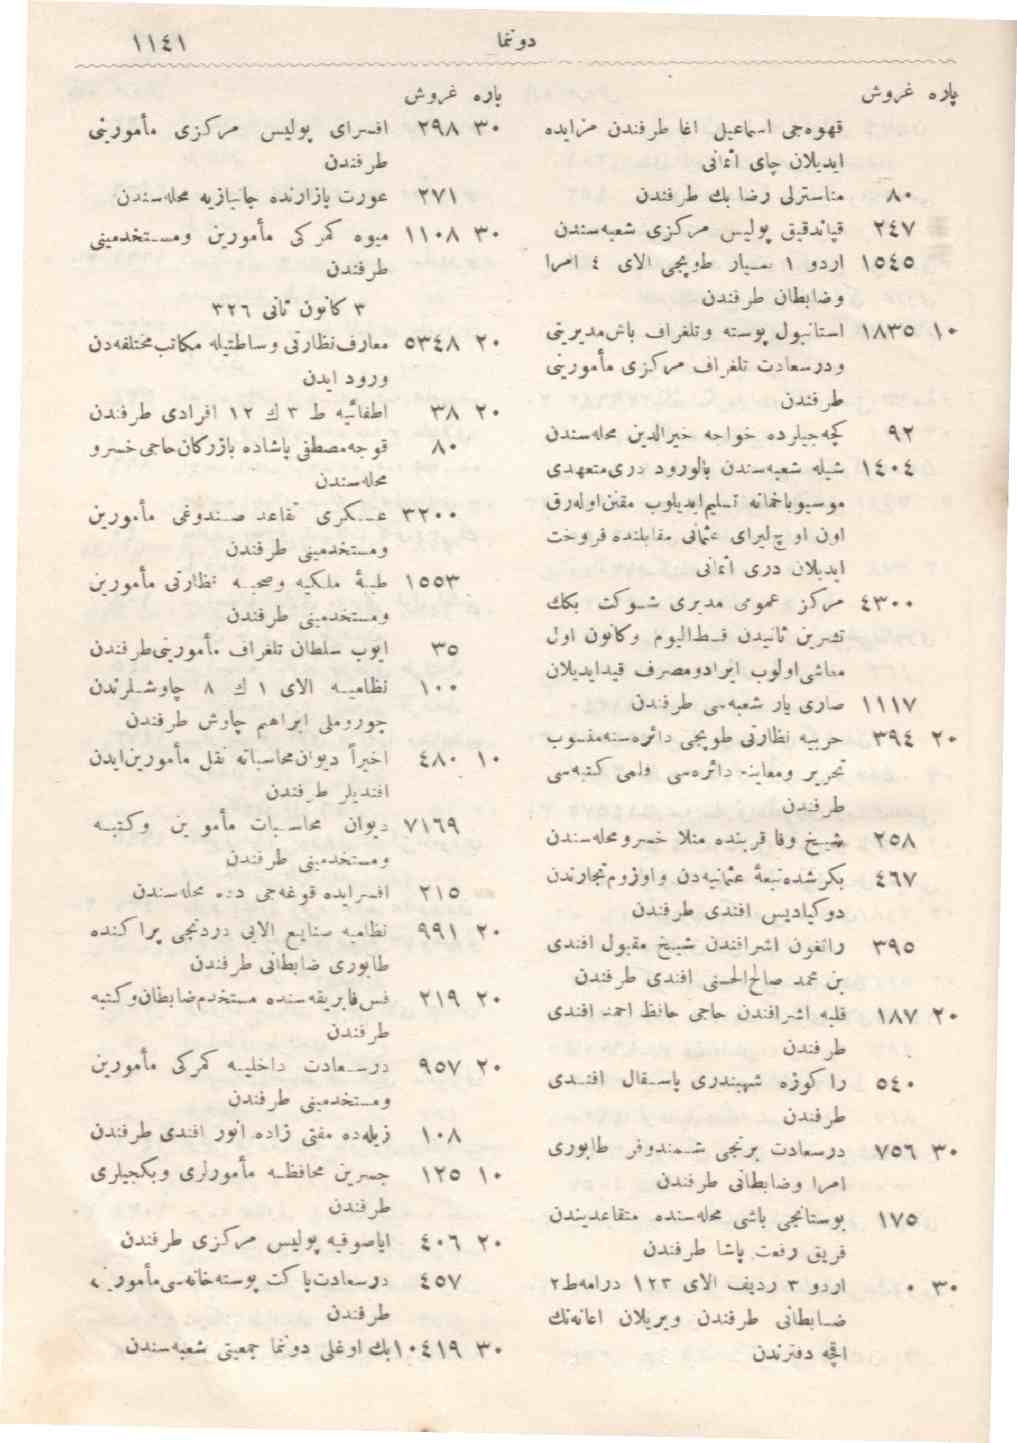 ١١٤١ دونما
پاره غروش
قهوه‌جی اسماعیل اغا طرفندن مزایده
ایدیلان چای اثمانی
٨٠ مناسترلی رضا بك طرفندن
٢٤٧ قپاندقیق پولیس مرکزی شعبه‌سندن
١٥٤٥ اردو ١ سیار طوپجی الای ٤ امرا
وضابطان طرفندن
١٠ ١٨٣٥ استانبول پوسته وتلغراف باش‌مدیریتی
ودرسعادت تلغراف مرکزی مأمورینی
طرفندن
٩٢ کچه‌جیلرده خواجه خیرالدین محله‌سندن
١٤٠٤ شیله شعبه‌سندن بالورود دری‌متعهدی
موسیوباخمانه تسلیم‌ایدیلوب مقنن‌اوله‌رق
اون اوچ‌لیرای عثمانی مقابلنده فروخت
ایدیلان دری اثمانی
٤٣٠٠ مرکز عمومی مدیری شوکت بکك
تشرین ثانیدن فسط‌الیوم وکانون اول
معاشی‌اولوب ایرادومصرف قیدایدیلان
١١١٧ صاری یار شعبه‌سی طرفندن
٢٠ ٣٩٤ حربیه نظارتی طوپجی دائره‌سنه‌منسوب
تحریر ومعاینه دائره‌سی قلمی کتبه‌سی
طرفندن
٢٥٨ شیخ وفا قربنده منلا خسرومحله‌سندن
٤٦٧ بکرشده‌تبعهٔ عثمانیه‌دن واوزوم‌تجارندن
دوکیادیس افندی طرفندن
٣٩٥ رانغون اشرافندن شیخ مقبول افندی
بن محمد صالح‌الحسنی افندی طرفندن
٢٠ ١٨٧ قلبه اشرافندن حاجی حافظ احمد افندی
طرفندن
٥٤٠ راکوزه شهبندری پاسقال افندی
طرفندن
٣٠ ٧٥٦ درسعادت برنجی شمندوفر طابوری
امرا وضابطانی طرفندن
١٧٥ بوستانجی باشی محله‌سنده متقاعدیندن
فریق رفعت پاشا طرفندن
٣٠ ٠ اردو ٣ ردیف الای ١٢٣ درامه‌ط٢
ضابطانی طرفندن ویریلان اعانه‌نك
اقچه دفترندن
پاره غروش
٣٠ ٢٩٨ افسرای پولیس مرکزی مأمورینی
طرفندن
٢٧١ عورت بازارنده جانبازیه محله‌سندن
٣٠ ١١٠٨ میوه کمرکی مأمورین ومستخدمینی
طرفندن
٣ کانون ثانی ٣٢٦
٢٠ ٥٣٤٨ معارف‌نظارتی وساطتیله مکاتب‌مختلفه‌دن
ورود ایدن
٢٠ ٣٨ اطفائیه ط ٣ ك ١٢ افرادی طرفندن
٨٠ قوجه‌مصطفی پاشاده بازرکان‌حاجی‌خسرو
محله‌سندن
٣٢٠٠ عسکری تقاعد صندوغی مأمورین
ومستخدمینی طرفندن
١٥٥٣ طبیهٔ ملکیه وصحیه نظارتی مأمورین
ومستخدمینی طرفندن
٣٥ ایوب سلطان تلغراف مأمورینی‌طرفندن
١٠٠ نظامیه الای ١ ك ٨ چاوشلرندن
چوروملی ابراهیم چاوش طرفندن
١٠ ٤٨٠ اخیراً دیوان‌محاسباته نقل مأمورین‌ایدن
افندیلر طرفندن
٧١٦٩ دیوان محاسبات مأمورین وکتبه
ومستخدمینی طرفندن
٢١٥ افسرایده قوغه‌جی دده محله‌سندن
٢٠ ٩٩١ نظامیه صنایع الایی دردنجی پراکنده
طابوری ضابطانی طرفندن
٢٠ ٢١٩ فس‌فابریقه‌سنده مستخدم‌ضابطان‌وکتبه
طرفندن
٢٠ ٩٥٧ درسعادت داخلیه کمرکی مأمورین
ومستخدمینی طرفندن
١٠٨ زیله‌ده مفتی زاده انور افندی طرفندن
١٠ ١٢٥ جسرین محافظه مأمورلری وبکجیلری
طرفندن
٢٠ ٤٠٦ ایاصوفیه پولیس مرکزی طرفندن
٤٥٧ درسعادت‌پاکت پوسته‌خانه‌سی‌مأمورینی
طرفندن
٣٠ ١٠٤١٩ بك اوغلی دونما جمعیتی شعبه‌سندن